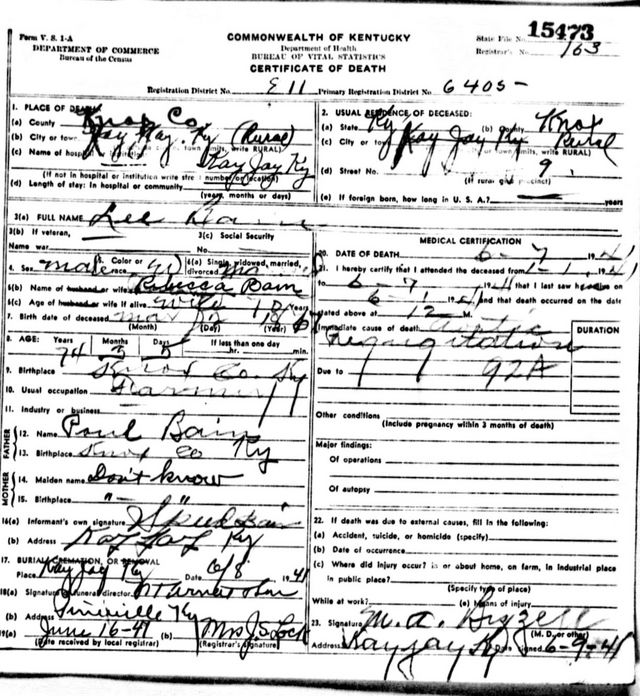 Form V. S. 1-A
DEPARTMENT OF COMMERCE
Bureau of the Census
COMMONWEALTH OF KENTUCKY
Department of Health
BUREAU OF VITAL STATISTICS
CERTIFICATE OF DEATH
State File No. 15473
Registrar's No. 163
Registration District No. E11 Primary Registration District No. 6405-
1. PLACE OF DEATH
(a) County Knox Co
(b) City or town Kay Jay. Ky (Rural)
(c) Name of hospital or institution Kay Jay Ky
(If not in hospital or institution write street number or location)
(d) Length of stay: In hospital or community
(years, months or days)
2. USUAL RESIDENCE OF DECEASED:
(a) State Ky (b) County Knox
(c) City or town Kay Jay Ky Rural
(d) Street No. 9
(If rural give precinct)
(e) If foreign born, how long in U. S. A.? years
3(a) FULL NAME Lee Bain
3(b) If veteran, Name war
3(c) Social Security No.
4. Sex male 5. Color or race W 6(a) Single, widowed, married, divorced Ma
6(b) Name of husband or wife Rebecca Bain
6(c) Age of husband or wife if alive wife 70 Years
7. Birth date of deceased Mar 12 1867
(Month) (Day) (Year)
8. AGE: Years 74 Months Days If less than one day hr. min.
9. Birthplace Knox Co. Ky
10. Usual occupation Farming
11. Industry or business
FATHER
12. Name Poul Bain
13. Birthplace Knox Co Ky
MOTHER
14. Maiden name Don't know
15. Birthplace "- "
16(a) Informant's own signature Bain
(b) Address Kay Jay Ky
17. BURIAL, CREMATION, OR REMOVAL
Place Kay Jay Ky Date 6/8 1941
18(a) Signature of funeral director
(b) Address Ky
19(a) June 16-41 (b) Mrs J S Lock
(Date received by local registrar) (Registrar's signature)
MEDICAL CERTIFICATION
20. DATE OF DEATH 6-7 1941
21. I hereby certify that I attended the deceased from 1-1 1941
to 6-7 1941 that I last saw he alive on
6 1 1941 and that death occurred on the date
stated above at 12 M.
Immediate cause of death Aortic
Regurgitation
DURATION
Due to 92A
Other conditions
(Include pregnancy within 3 months of death)
Major findings:
Of operations
Of autopsy
22. If death was due to external causes, fill in the following:
(a) Accident, suicide, or homicide (specify)
(b) Date of occurrence
(c) Where did injury occur? is or about home, on farm, in industrial place
in public place?
(Specify type of place)
While at work? (e) Means of injury
23. Signature M. A.
(M. D. or other)
Address Kay Jay Ky Date signed 6-9-41